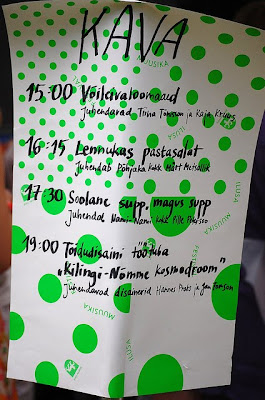 KAVA
MUUSIKA
15:00 Võileivaloomaad
Juhendavad Triina Tomson ja Kaja Kruus
ILUSA
16:15 Lennukas pastasalat
Juhendab Põhjaka kokk Märt Metsallik
ILUSA
17:30 Soolane supp, magus supp
Juhendab Nami-Nami kokk Pille Petersoo
MUUSIKA
19:00 Toidudisaini töötuba
"Kilingi-Nõmme kosmodroom"
Juhendavad disainerid Hannes ja Jan Tomson
MUUSIKA
ILUSA